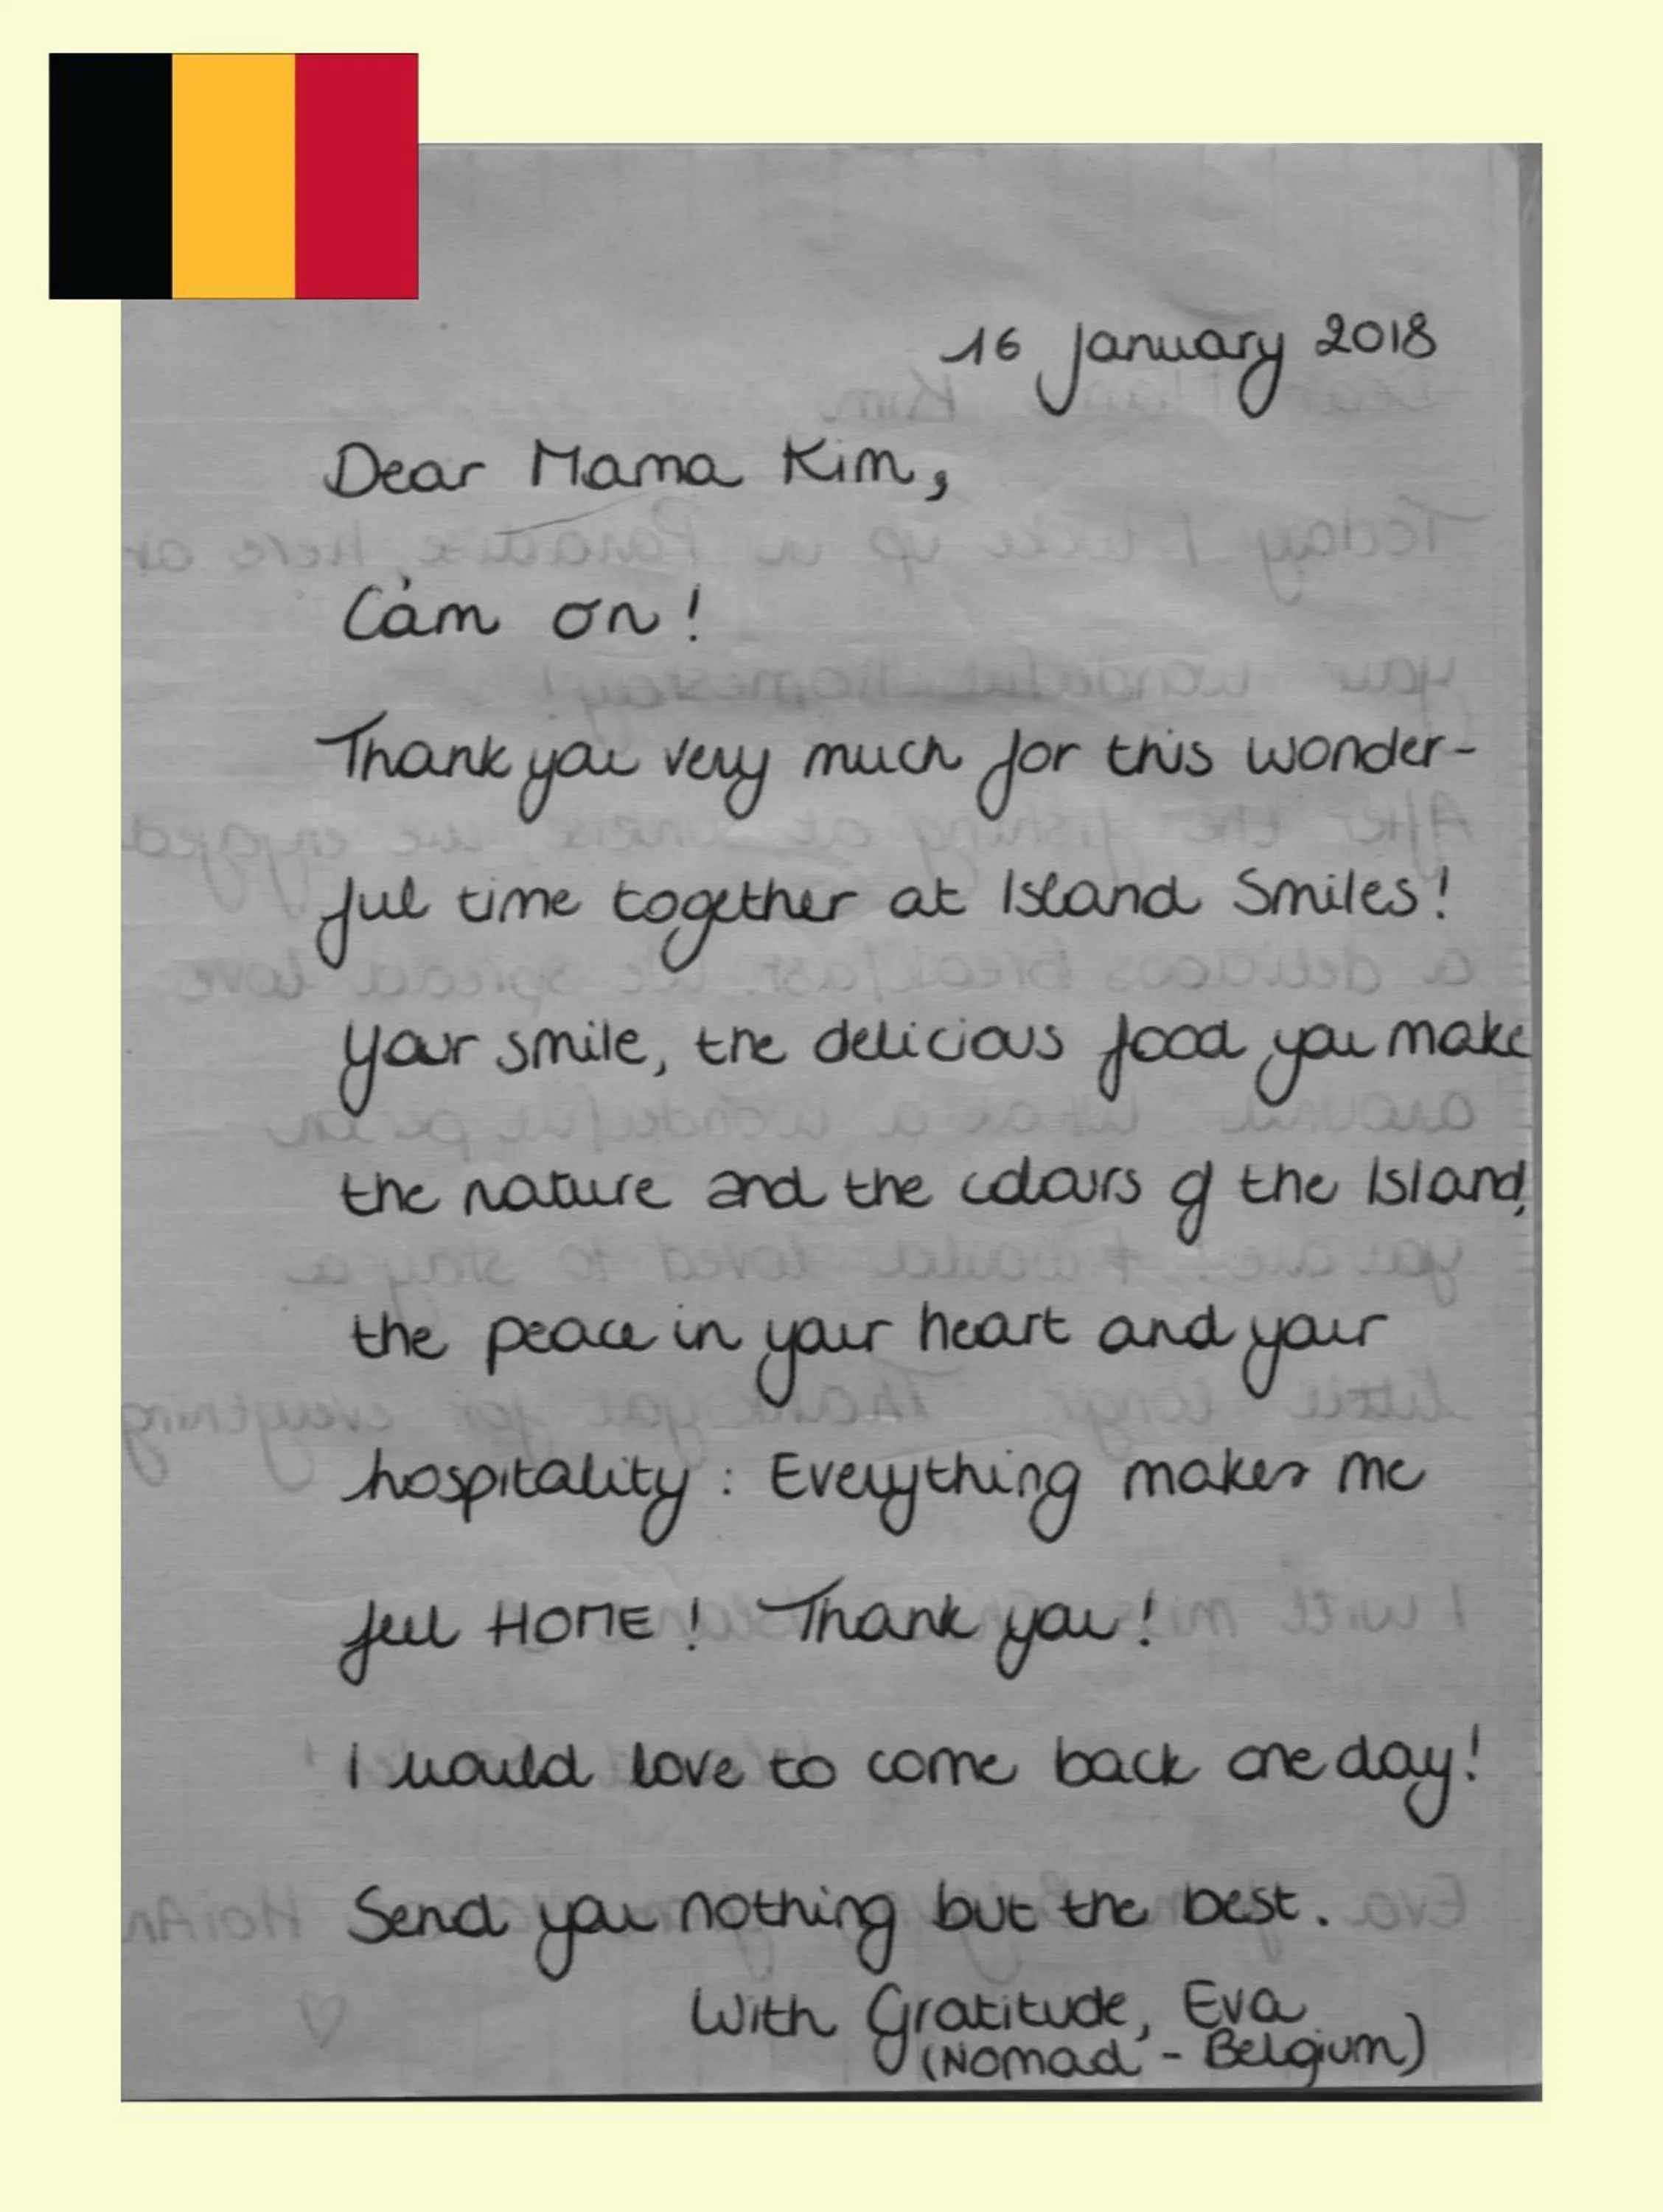 16 January 2018
Dear Mama Kim,
Cảm ơn!
Thank you very much for this wonder-
ful time together at Island Smiles!
Your smile, the delicious food you make
the nature and the colours of the Island,
the peace in your heart and your
hospitality : Everything makes me
feel HOME! Thank you!
I would love to come back one day!
Send you nothing but the best.
With Gratitude, Eva
(Nomad - Belgium)